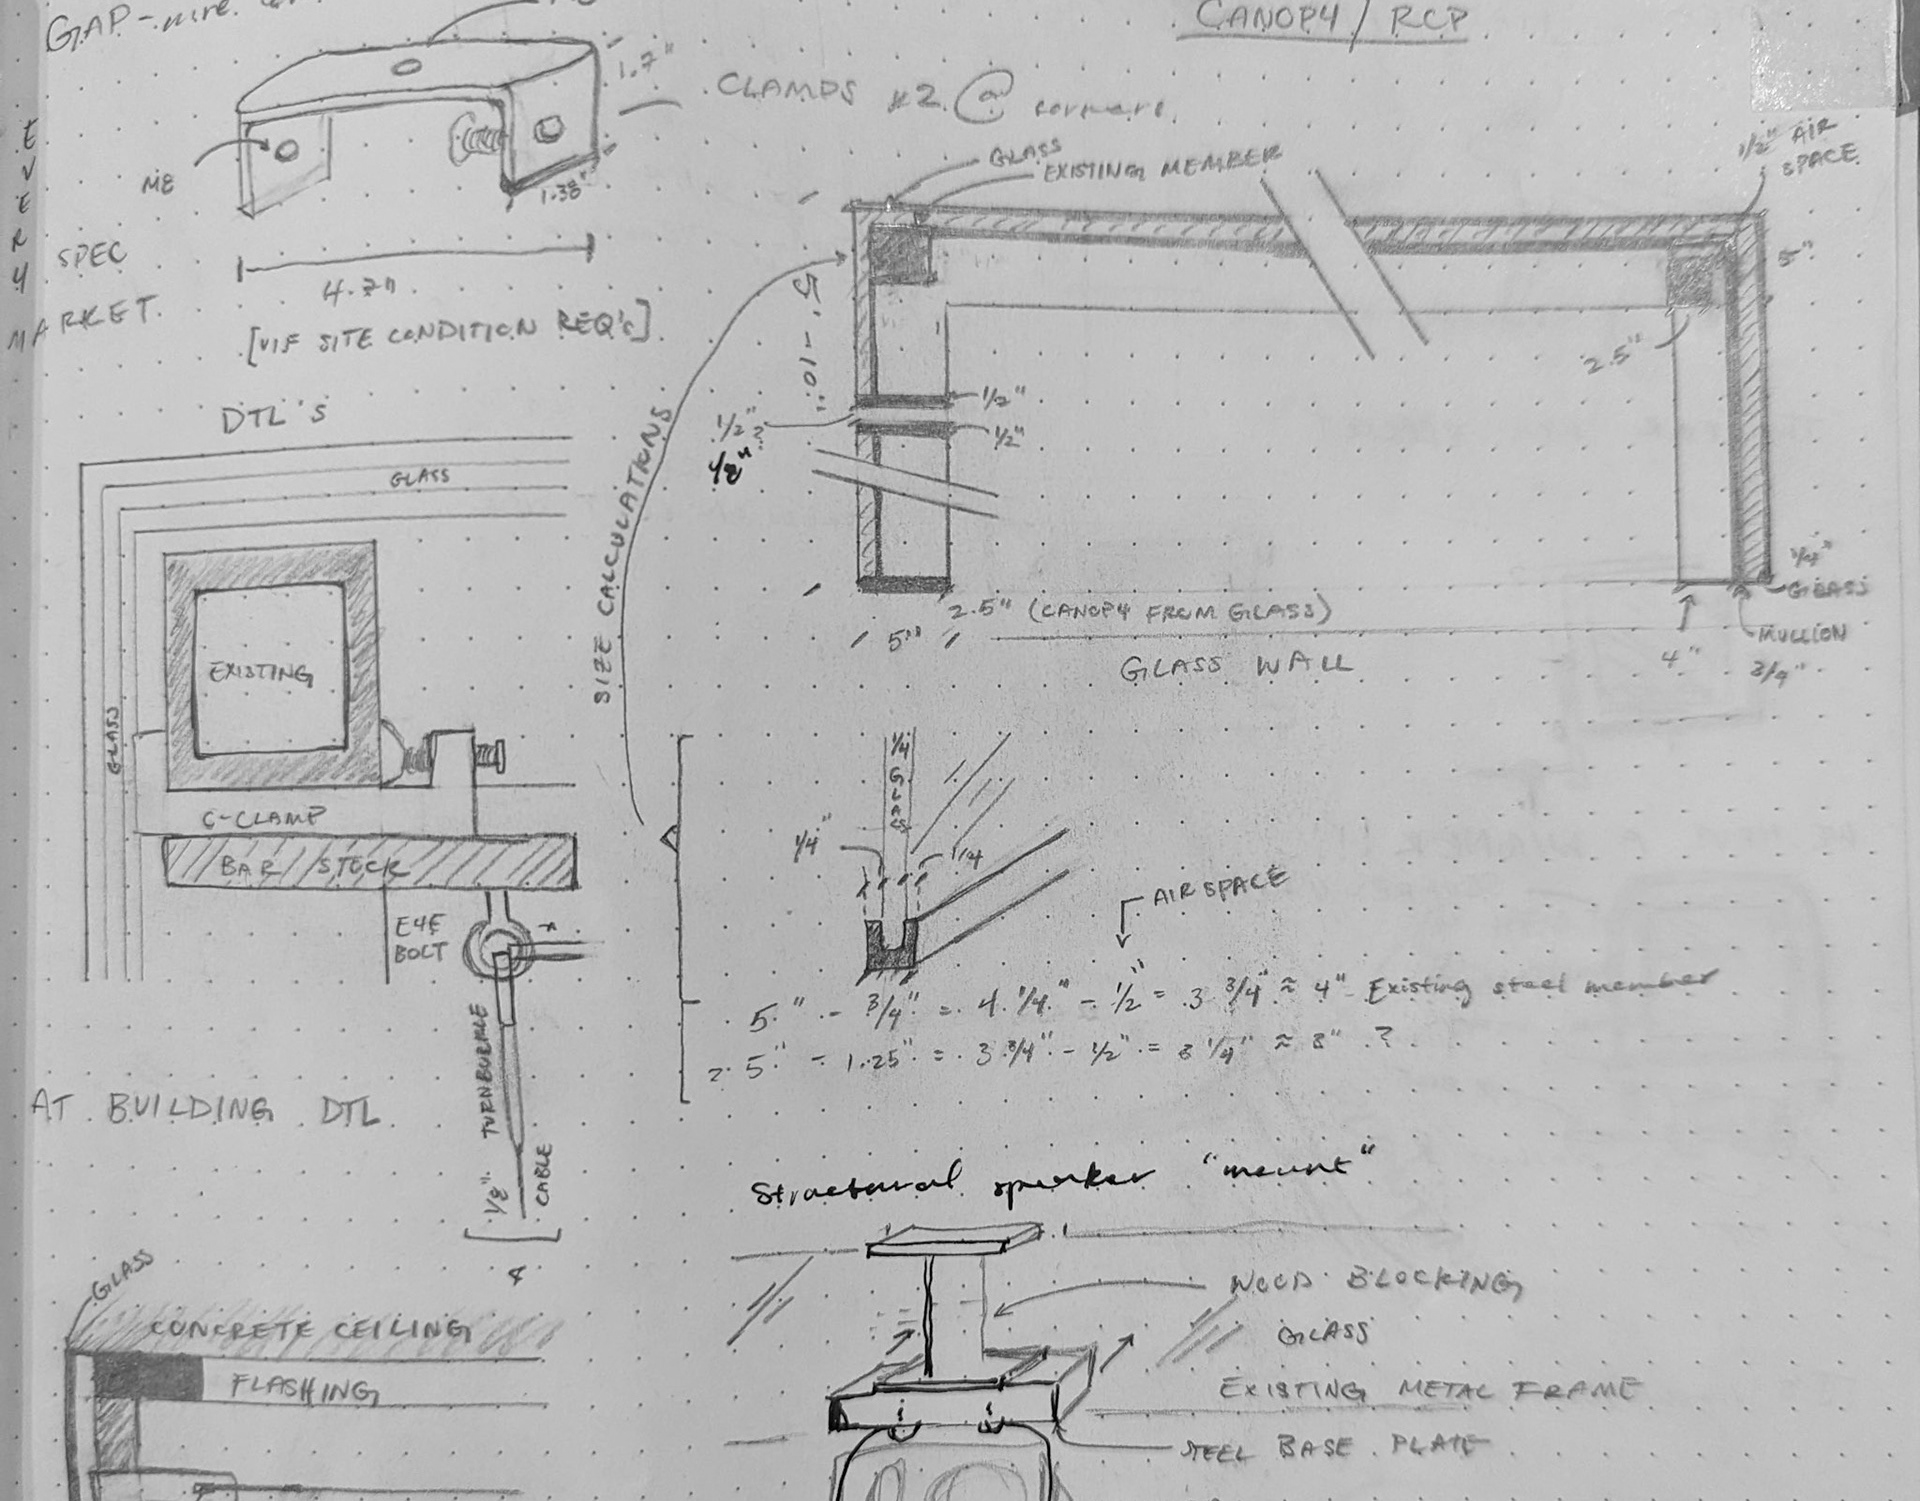 GAP-
CANOPY / RCP
1.7"
CLAMPS x2 @ corners.
M8
1.38"
4.7"
[VIF SITE CONDITION REQ's]
EVERY
SPEC
MARKET.
GLASS
EXISTING MEMBER
1/2" AIR
SPACE
5"
2.5"
5'-10"
1/2"
1/2"
1/2"?
1/8"
1/4"
GLASS
MULLION
3/4"
4"
2.5" (CANOPY FROM GLASS)
5"
GLASS WALL
DTL'S
GLASS
GLASS
EXISTING
C-CLAMP
BAR STOCK
EYE
BOLT
*
TURNBUCKLE
1/8"
CABLE
SIZE CALCULATIONS
1/4 GLASS
1/4"
1/4
AIR SPACE
5" - 3/4" = 4 1/4" - 1/2" = 3 3/4" ≈ 4" Existing steel member
5" - 1.25" = 3 3/4" - 1/2" = 3 1/4" ≈ 3" ?
AT BUILDING DTL
GLASS
CONCRETE CEILING
FLASHING
Structural speaker "mount"
WOOD BLOCKING
GLASS
EXISTING METAL FRAME
STEEL BASE PLATE